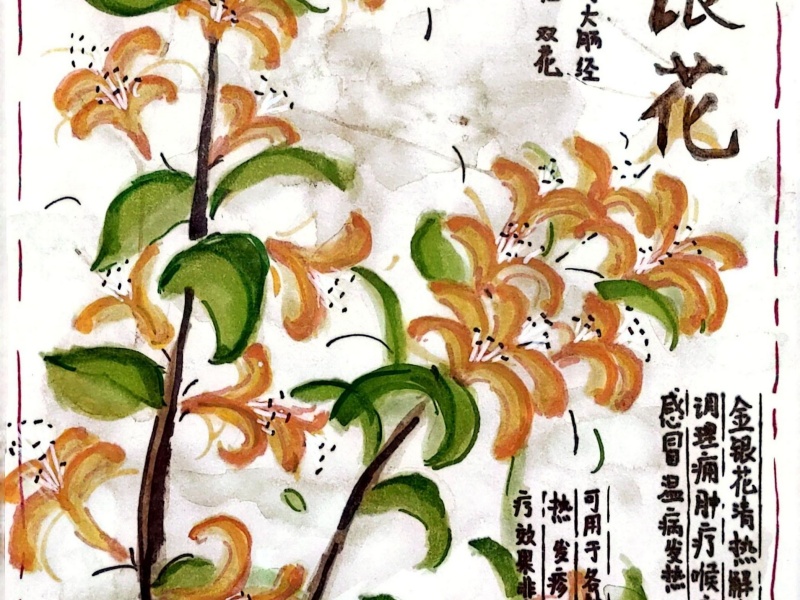 银花
大肠经
双花
金银花清热解
调理痈肿疔喉
感冒温病发热
可用于各
热发疹
疗效果非